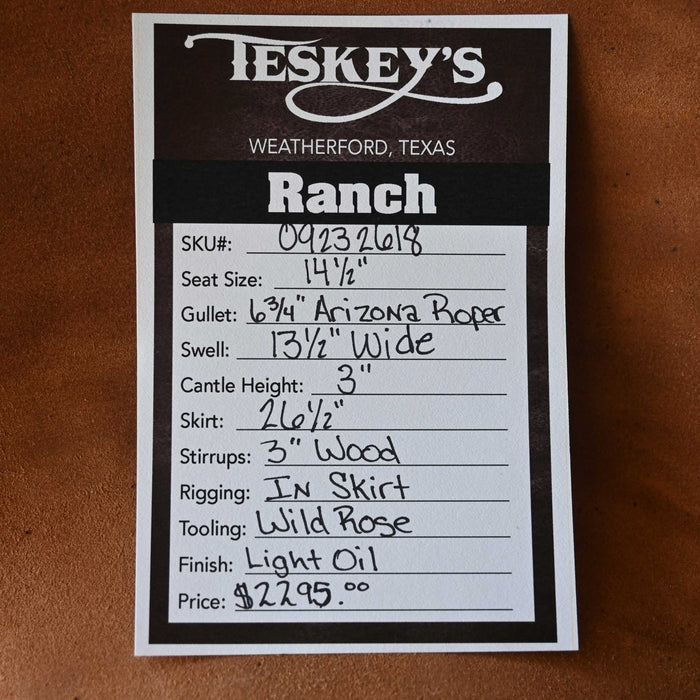 TESKEY'S
WEATHERFORD, TEXAS
Ranch
SKU#: 09232618
Seat Size: 14 1/2"
Gullet: 6 3/4" Arizona Roper
Swell: 13 1/2" Wide
Cantle Height: 3"
Skirt: 26 1/2"
Stirrups: 3" Wood
Rigging: In Skirt
Tooling: Wild Rose
Finish: Light Oil
Price: $2295.00